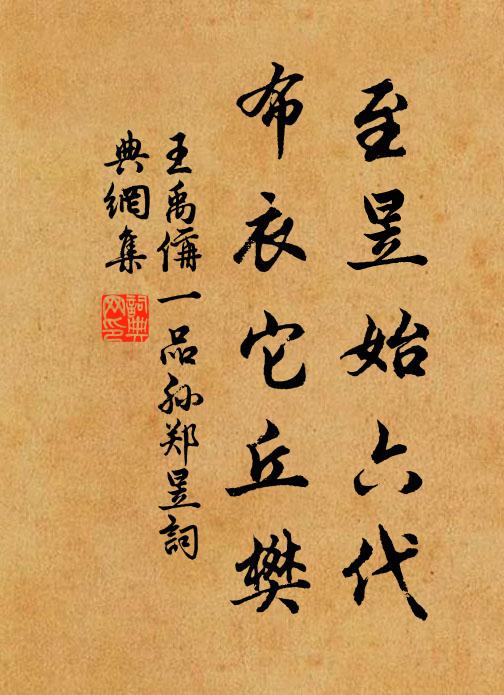 至昱始六代
布衣它丘樊
王禹偁一品孙郑昱詞
典網集
詞典网印